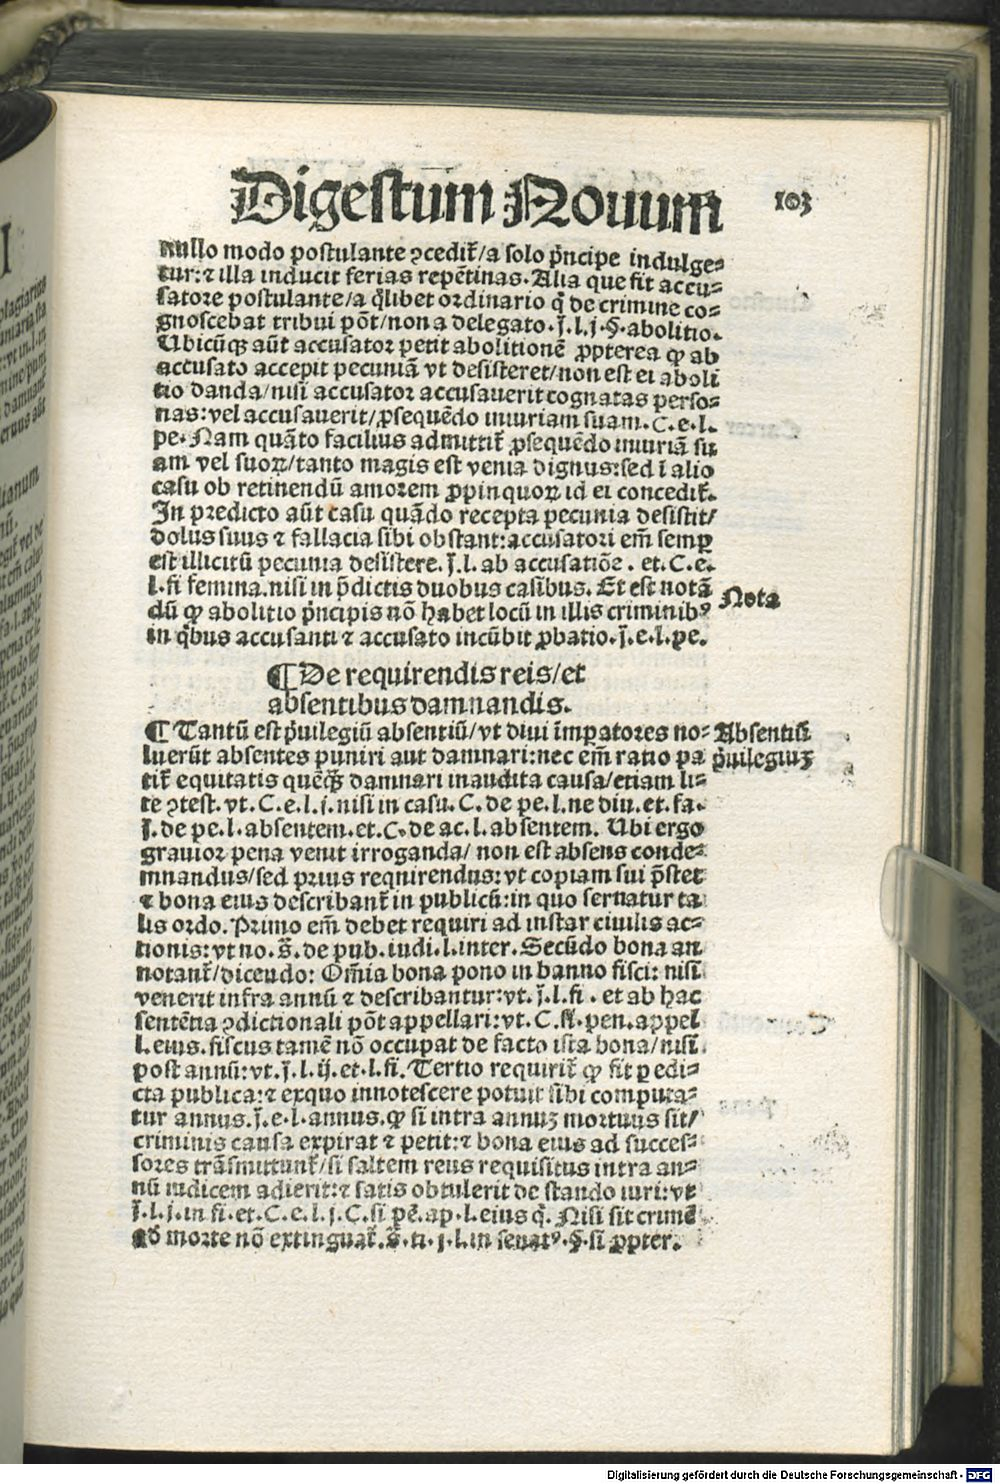 Digestum Nouum 103
nullo modo postulante ꝯcedit̃/a solo p̃ncipe indulge⸗
tur:⁊ illa inducit ferias repẽtinas. Alia que fit accu⸗
satore postulante/a q̃libet ordinario q̃ de crimine co⸗
gnoscebat tribui põt/non a delegato. j̃. l. j. §. abolitio.
Ubicũqꝫ aũt accusator petit abolitionẽ ꝓpterea ꝙ ab
accusato accepit pecuniã vt desisteret/non est ei aboli
tio danda/nisi accusator accusauerit cognatas perso⸗
nas: vel accusauerit/ꝓsequẽdo iniuriam suam. C. e. l.
pe. Nam quãto facilius admittit̃ ꝓsequẽdo iniuriã su
am vel suoꝝ/tanto magis est venia dignus: sed ĩ alio
casu ob retinendũ amorem ꝓpinquoꝝ id ei concedit̃.
In predicto aũt casu quãdo recepta pecunia desistit/
dolus suus ⁊ fallacia sibi obstant: accusatori em̃ semꝑ
est illicitũ pecunia desistere. j̃. l. ab accusatiõe. et. C. e.
l. fi femina. nisi in p̃dictis duobus casibus. Et est notã
dũ ꝙ abolitio p̃ncipis nõ habet locũ in illis criminibꝰ
in q̃bus accusanti ⁊ accusato incũbit ꝓbatio. j̃. e. l. pe.
Nota
¶ De requirendis reis/et
absentibus damnandis.
¶ Tantũ est p̃uilegiũ absentiũ/vt diui ĩmperatores no⸗
luerũt absentes puniri aut damnari: nec em̃ ratio pa
tit̃ equitatis quẽqꝫ damnari inaudita causa/etiam li⸗
te ꝯtest. vt. C. e. l. j. nisi in casu. C. de pe. l. ne diu. et. fa.
j̃. de pe. l. absentem. et. C. de ac. l. absentem. Ubi ergo
grauior pena venit irroganda/ non est absens conde⸗
mnandus/sed prius requirendus: vt copiam sui p̃stet
⁊ bona eius describant̃ in publicũ: in quo seruatur ta
lis ordo. Primo em̃ debet requiri ad instar ciuilis ac⸗
tionis: vt no. s̃. de pub. iudi. l. inter. Secũdo bona an
notant̃/dicendo: Om̃ia bona pono in banno fisci: nisi
venerit infra annũ ⁊ describantur: vt. j̃. l. fi. et ab hac
sentẽtia ꝯdictionali põt appellari: vt. C. si. pen. appel
l. eius. fiscus tamẽ nõ occupat de facto ista bona/nisi
post annũ: vt. j̃. l. ij. et. l. fi. Tertio requirit̃ ꝙ fit ꝑ edi⸗
cta publica: ⁊ exquo innotescere potuit sibi computa⸗
tur annus. j̃. e. l. annus. ꝙ si intra annuꝫ mortuus sit/
criminis causa expirat ⁊ petit: ⁊ bona eius ad succes⸗
sores trãsmittunt̃/si saltem reus requisitus intra an⸗
nũ iudicem adierit: ⁊ satis obtulerit de stando iuri: vt
j̃. l. j. in fi. et. C. e. l. j. C. si pẽ. ap. l. eius q̃. Nisi sit crimẽ
qõ morte nõ extinguat̃. s̃. ti. j. l. in senatꝰ. §. si ꝓpter.
Absentiũ
p̃uilegiuꝫ
Digitalisierung gefördert durch die Deutsche Forschungsgemeinschaft - DFG